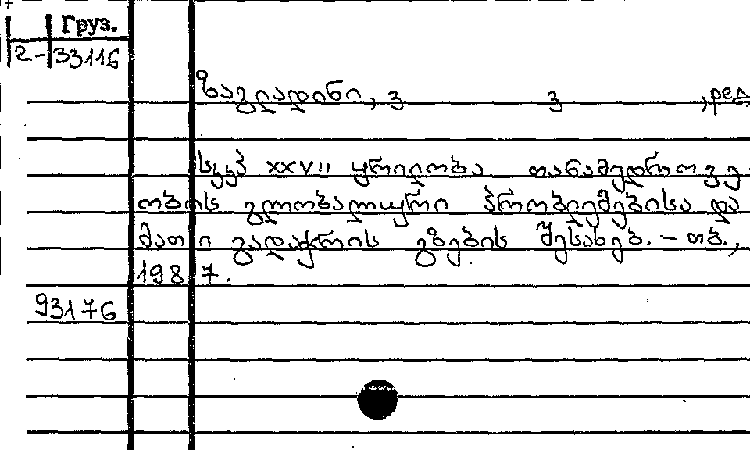 Груз.
2-33116
ზაგლადინი, ვ ვ ,ред
სკკპ XXVII ყრილობა თანამედროვე-
ობის გლობალური პრობლემებისა და
მათი გადაჭრის გზების შესახებ. – თბ.,
1987.
93176